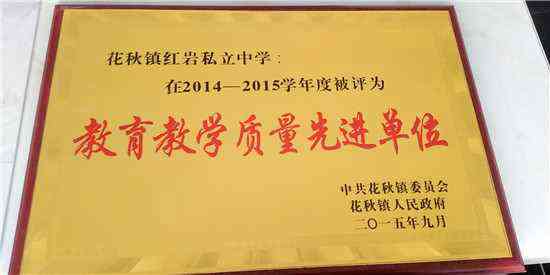 花秋镇红岩私立中学：
在2014—2015学年度被评为
教育教学质量先进单位
中共花秋镇委员会
花秋镇人民政府
二〇一五年九月